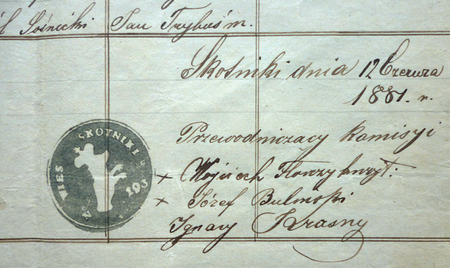 Sośnicki Jan Trybuś m.
Skotniki dnia 12 Czerwca
1881. r.
Przewodniczący Komisyi
+ Wojciech
+ Józef Bulmoski
Ignacy Krasny
WIES SKOTNIKI
193